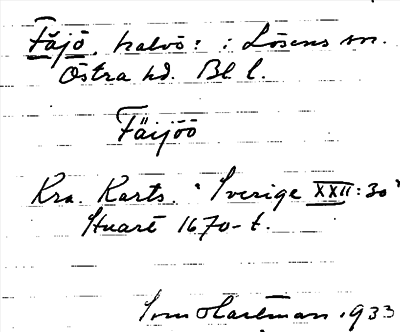 Fäjö, halvö: i Lösens sn.
Östra hd. Bl l.
Fäijöö
Kra. Karts. "Sverige XXII:30"
Stuart 1670-t.
Hartman 1933